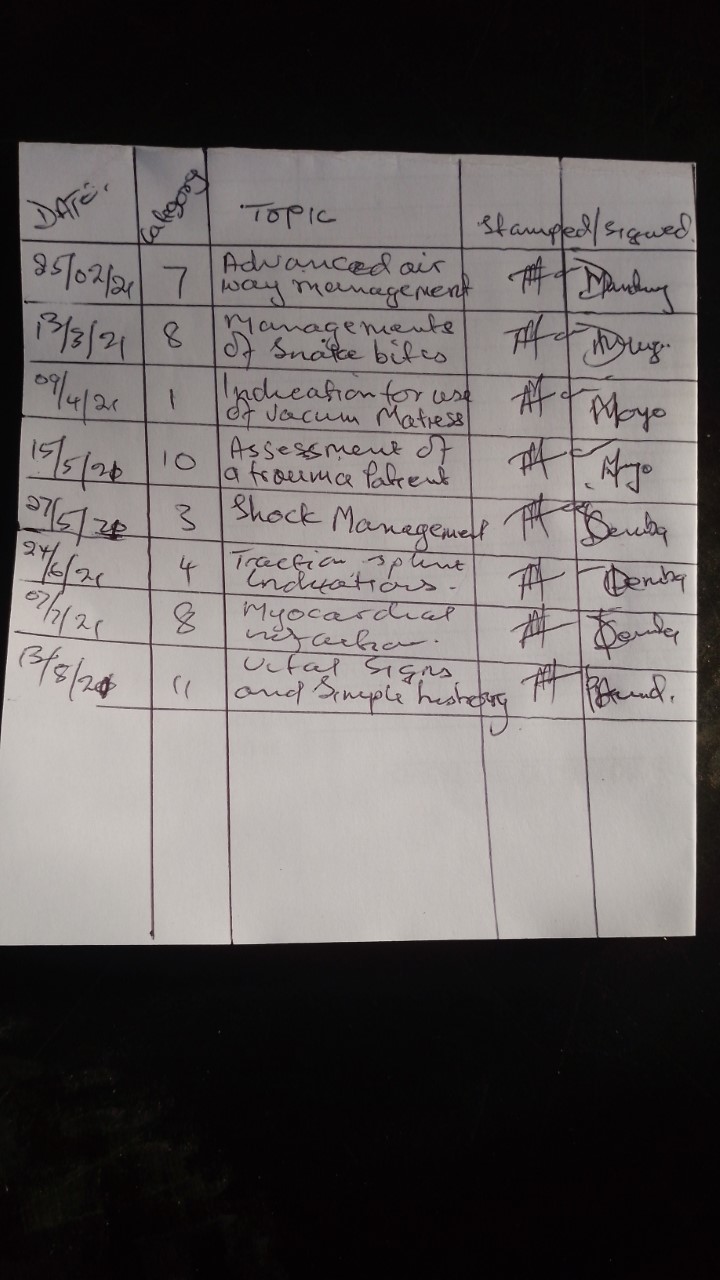 DATE: Category TOPIC Stamped/signed
25/02/21 7 Advanced air
way management
13/3/21 8 Managements
of Snake bites
09/4/21 1 Indication for use
of Vacum Matress Moyo
15/5/21 10 Assessment of
a trauma Patient
27/5/21 3 Shock Management Demba
24/6/21 4 Traction splint
Indications. Demba
02/7/21 8 Myocardial
infraction. Demba
13/8/21 11 Vital Signs
and Simple history